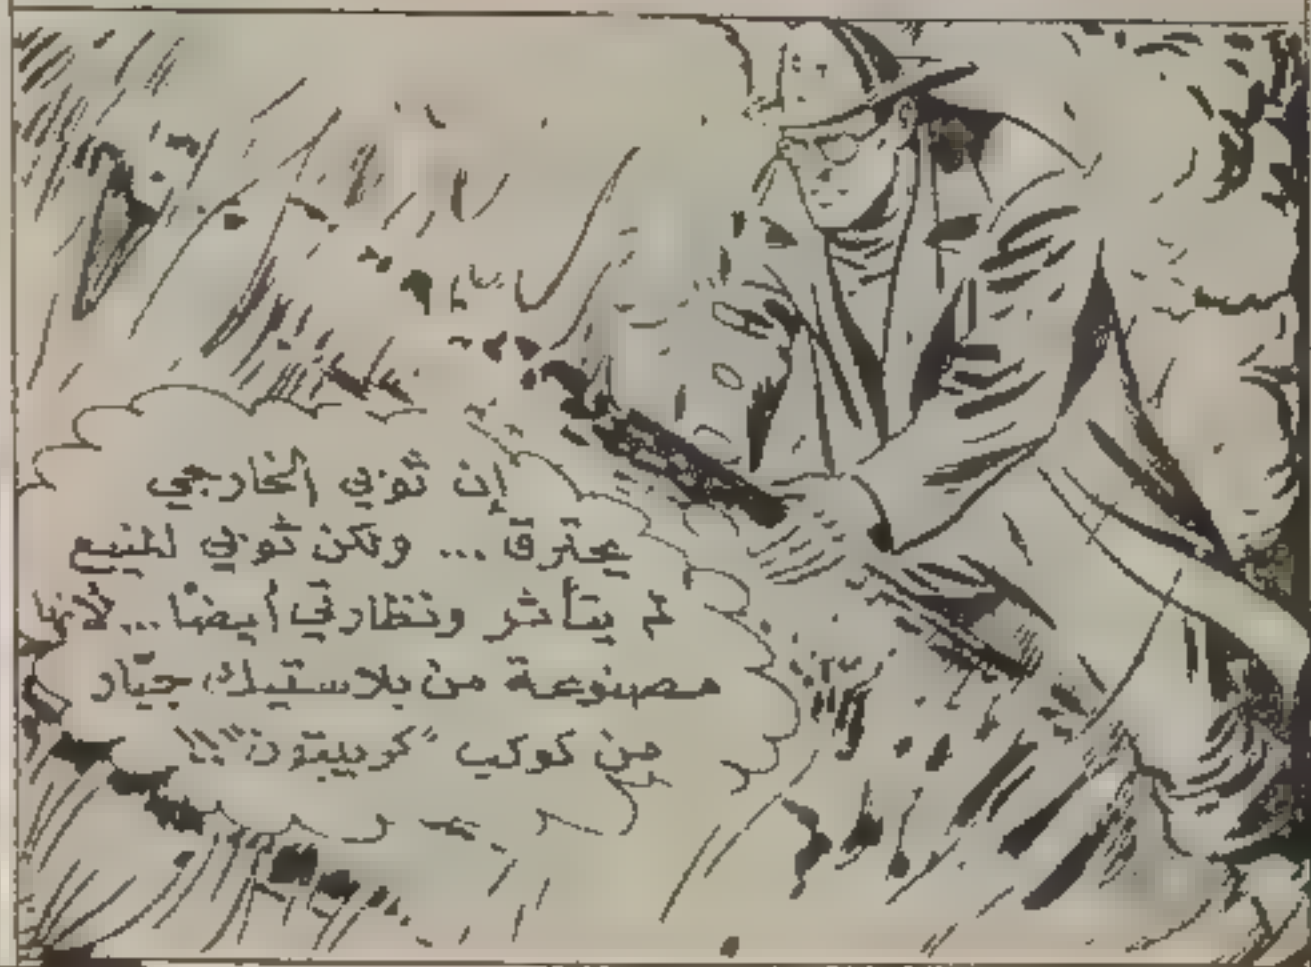 إن ثوبي الخارجي
يحترق ... ولكن ثوبي المنيع
لم يتأثر ونظارتي أيضًا ... لأنها
مصنوعة من بلاستيك جبّار
من كوكب "كريبتون"!!